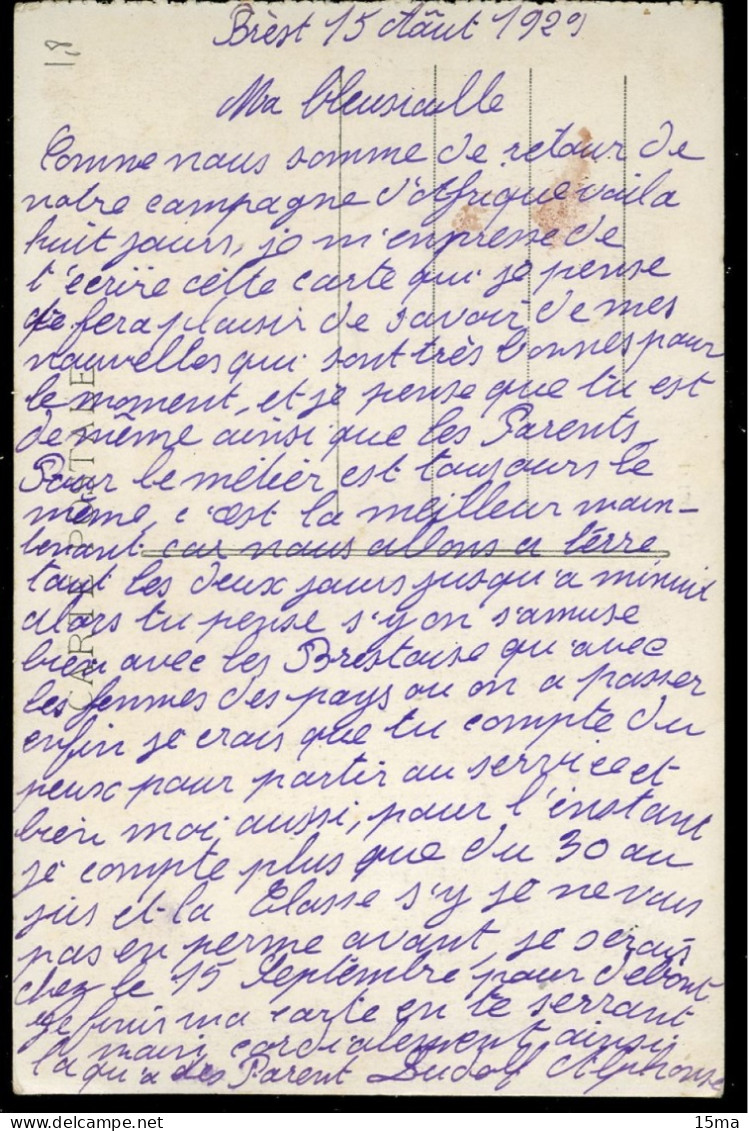 18
Brèst 15 Aôut 1929
Ma bleusaille
Comme nous somme de retour de
notre campagne d'Afrique voila
huit jours, je m'enpresse de
t'écrire cette carte qui je pense
te fera plaisir de savoir de mes
nouvelles qui sont très bonnes pour
le moment, et je pense que tu est
de même ainsi que les Parents
Pour le métier est toujours le
même, c'est la meilleur main-
tenant car nous allons a terre
tout les deux jours jusqu'a minuit
alors tu pense s'y on s'amuse
bien avec les Brestoise qu'avec
les femmes des pays ou on a passer
enfin je crois que tu compte du
peux pour partir au service et
bien moi aussi, pour l'instant
je compte plus que du 30 au
jus et la Classe s'y je ne vous
pas en perme avant je serais
chez le 15 Septembre pour debout
je finis ma carte en te serrant
la main cordialement ainsi
qu'a des Parent Ludolf Alphonse
CARTE POSTALE
15ma